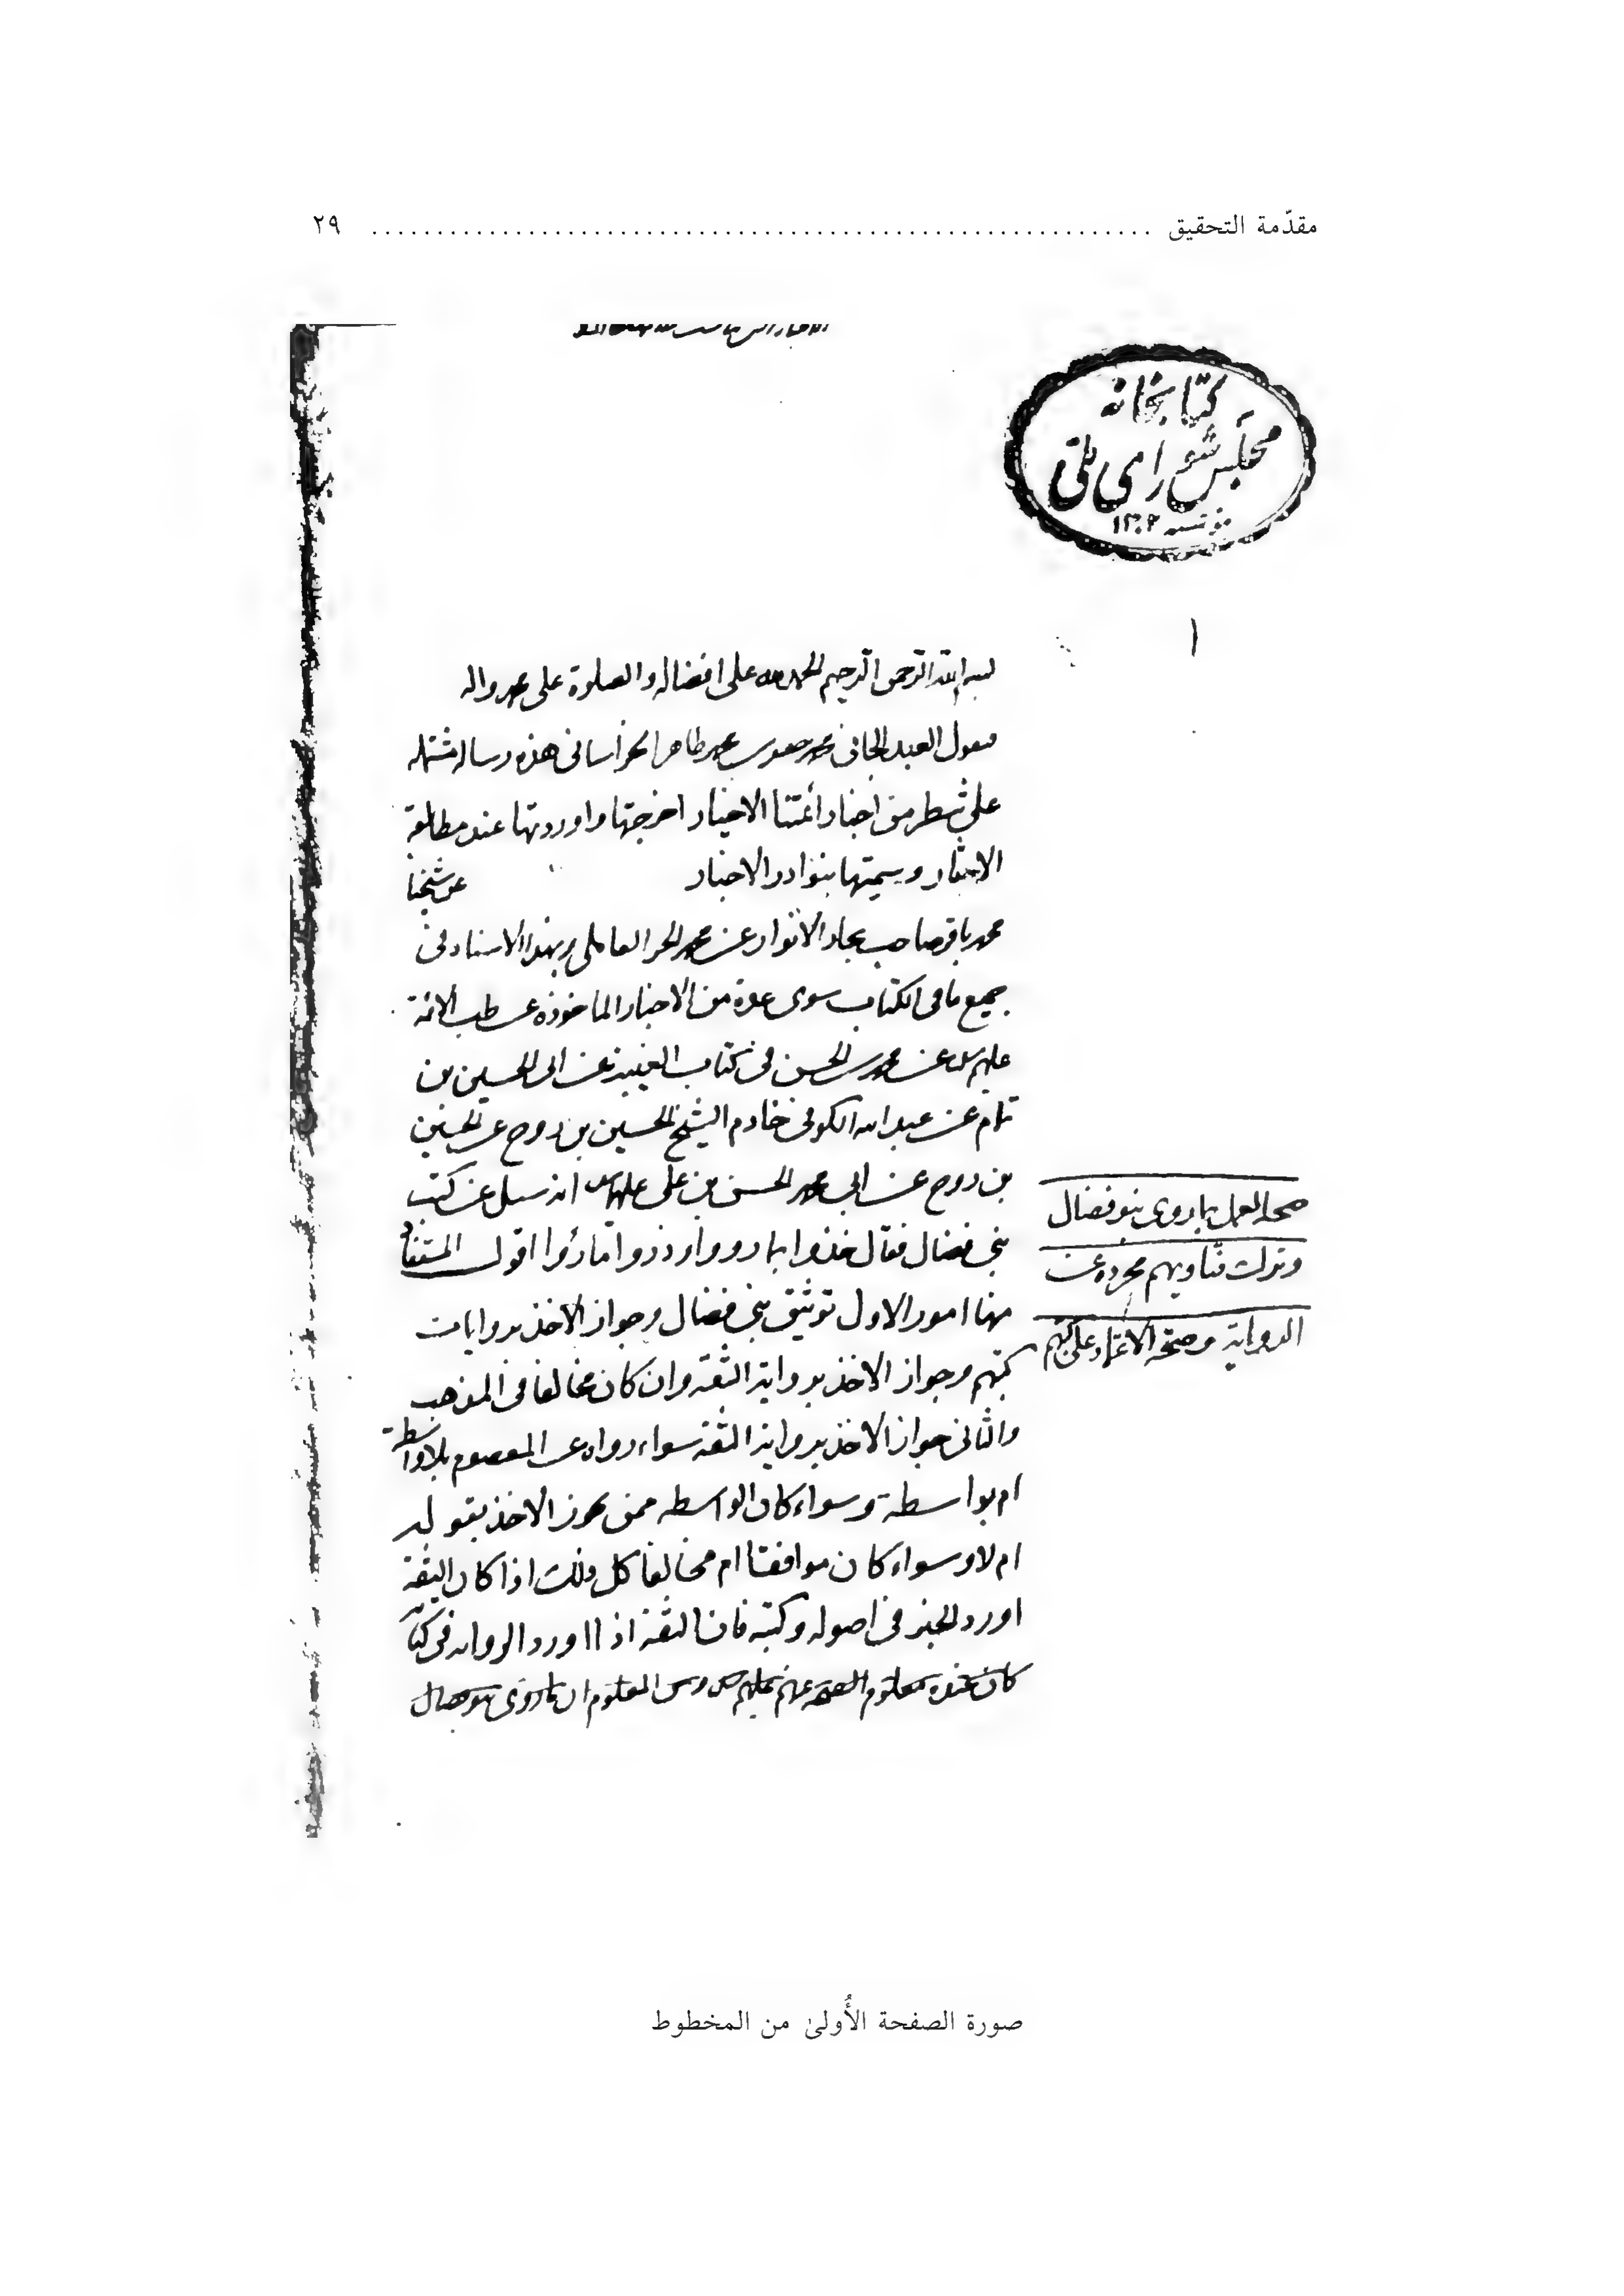 مقدّمة التحقيق ............................................................ ٢٩
كتابخانه
مجلس شوراي ملّى
١٣٠٢
١
بسم الله الرحمن الرحيم الحمد لله على افضاله والصلوة على محمد واله
يقول العبد الجانى محمد جعفر بن محمد طاهر الخراسانى هذه رساله مشتمله
على شطر من اخبار ائمتنا الاخيار اخرجتها واوردتها عند مطالعة
وسميتها بنوادر الاخبار عن شيخنا
محمد باقر صاحب بحار الانوار عن محمد الحر العاملى وبهذا الاسناد فى
جميع ما فى الكتاب سوى عدة من الاخبار الماخوذه عن طب الائمة
عن محمد بن الحسن فى كتاب الغيبة عن ابى الحسين بن
تمام عن عبد الله الكوفى خادم الشيخ الحسين بن روح عن الحسين
بن روح عن ابى محمد الحسن بن على انه سئل عن كتب
بنى فضال فقال خذوا بما رووا وذروا ما رأوا اقول المستفاد
منها امور الاول توثيق بنى فضال وجواز الاخذ بروايات
كتبهم وجواز الاخذ برواية الثقة وان كان مخالفا فى المذهب
والثانى جواز الاخذ برواية الثقة سواء رواه عن المعصوم بلا واسطة
ام بواسطة وسواء كان الواسطه ممن يجوز الاخذ بقوله
ام لا وسواء كان موافقا ام مخالفا كل ذلك اذا كان الثقة
اورد الخبر فى اصوله وكتبه فان الثقة اذا اورد الروايه فى كتابه
كان عنده معلوم الصحة عنهم ومن المعلوم ان ما روى بنو فضال
صحة العمل بما روى بنو فضال
وترك فتاويهم مجردة عن
الرواية وصحة الاعتماد على كتبهم
صورة الصفحة الأُولىٰ من المخطوط